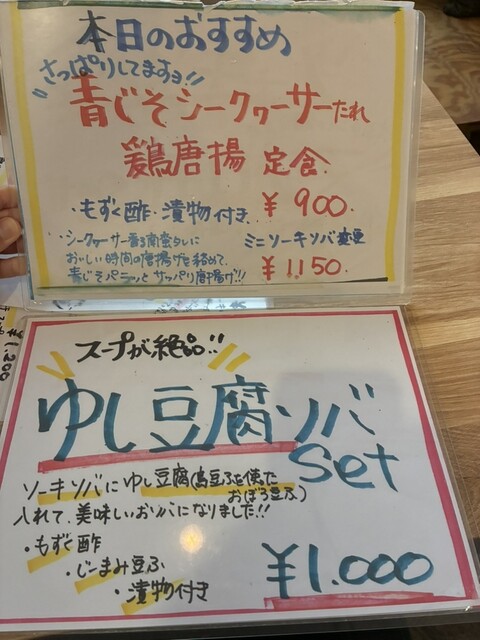 本日のおすすめ
さっぱりしてますョ!!
青じそシークヮーサーたれ
鶏唐揚 定食
・もずく酢・漬物付き ¥900.
シークヮーサー香る南蛮タレに
おいしい時間の唐揚げを絡めて、
青じそパラッと サッパリ唐揚げ!!
ミニソーキソバ変更
¥1150.
スープが絶品!!
ゆし豆腐ソバ
set
ソーキソバにゆし豆腐(島豆ふを使った
おぼろ豆ふ)
入れて、美味しいおソバになりました!!
・もずく酢
・じーまみ豆ふ
・漬物付き
¥1.000